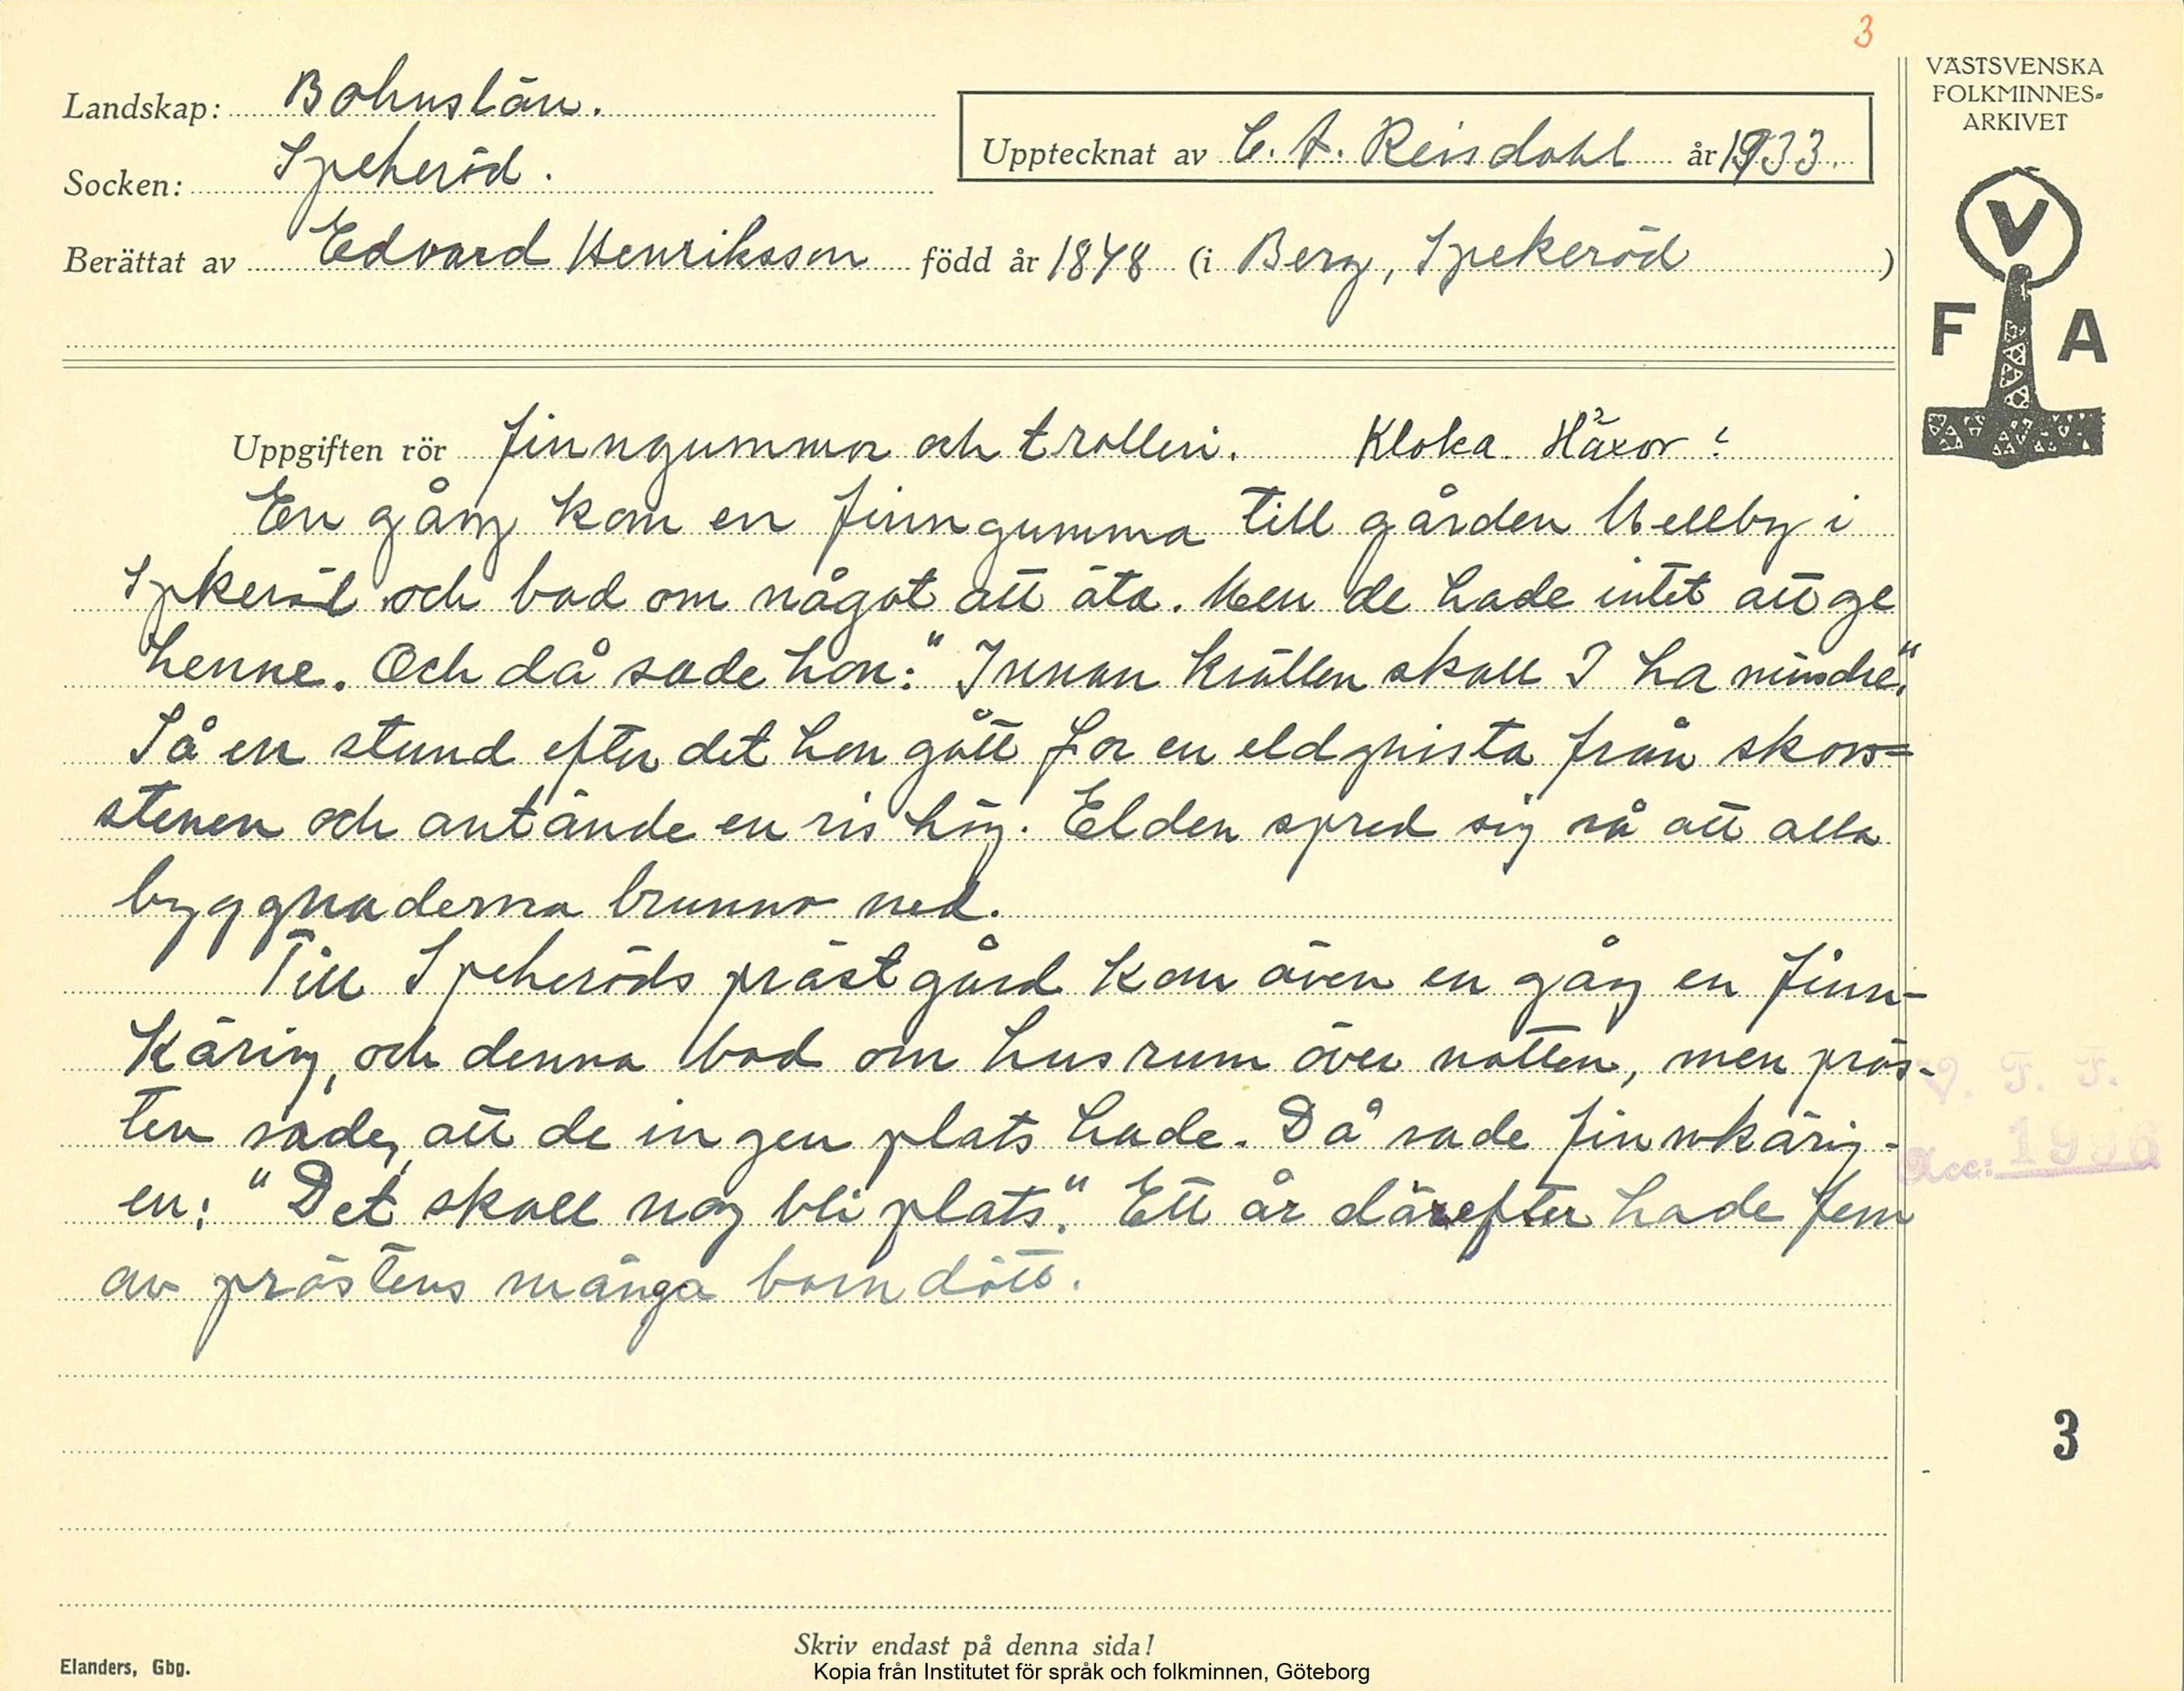 3
VÄSTSVENSKA
FOLKMINNES=
ARKIVET
Landskap: Bohuslän.
Upptecknat av C. A. Reisdahl år 1933.
Socken: Spekeröd.
Berättat av Edvard Henriksson född år 1848 (i Berg, Spekeröd )
V
F A
Uppgiften rör Finngummor och trolleri. Kloka. Häxor?
En gång kom en finngumma till gården Mellby i
Spkeröd och bad om något att äta. Men de hade intet att ge
henne. Och då sade hon: "Innan kvällen skall I ha mindre".
Så en stund efter det hon gått for en eldgnista från skors=
stenen och antände en rishög. Elden spred sig så att alla
byggnaderna brunno ned.
Till Spekeröds prästgård kom även en gång en finn-
käring, och denna bad om husrum över natten, men präs-
ten sade, att de ingen plats hade. Då sade finnkäring-
en: "Det skall nog bli plats". Ett år därefter hade fem
av prästens många barn dött.
V. F. F.
Acc: 1936
3
Skriv endast på denna sida!
Elanders, Gbg.
Kopia från Institutet för språk och folkminnen, Göteborg